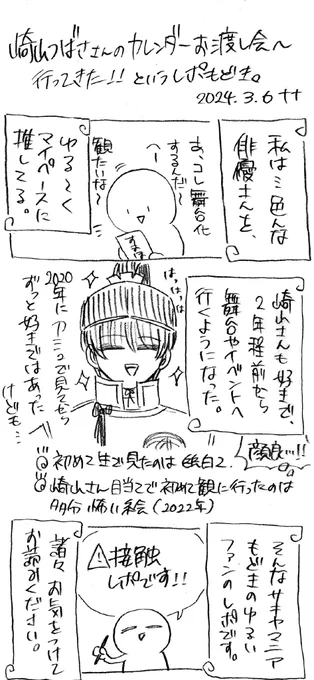 崎山つばささんのカレンダーお渡し会へ
行ってきた!!というレポもどき。
2024.3.6 ナナ
私は色んな
俳優さんを、
あ、コレ舞台化
するんだ〜
へー
観たいな〜
ゆる〜く
マイペースに
推してる。
崎山さんも好きで、
2年程前から
舞台やイベントへ
行くようになった。
はっはっは
2020
年に
見てから
ずっと好きではあった
けども…
顔良…!!
初めて生で見たのは
崎山さん目当てで初めて観に行ったのは
多分 怖い絵(2022年)
そんなサキヤマニア
もどきのゆるい
ファンのレポです。
⚠接触
レポです!!
諸々お気をつけて
お読みください。